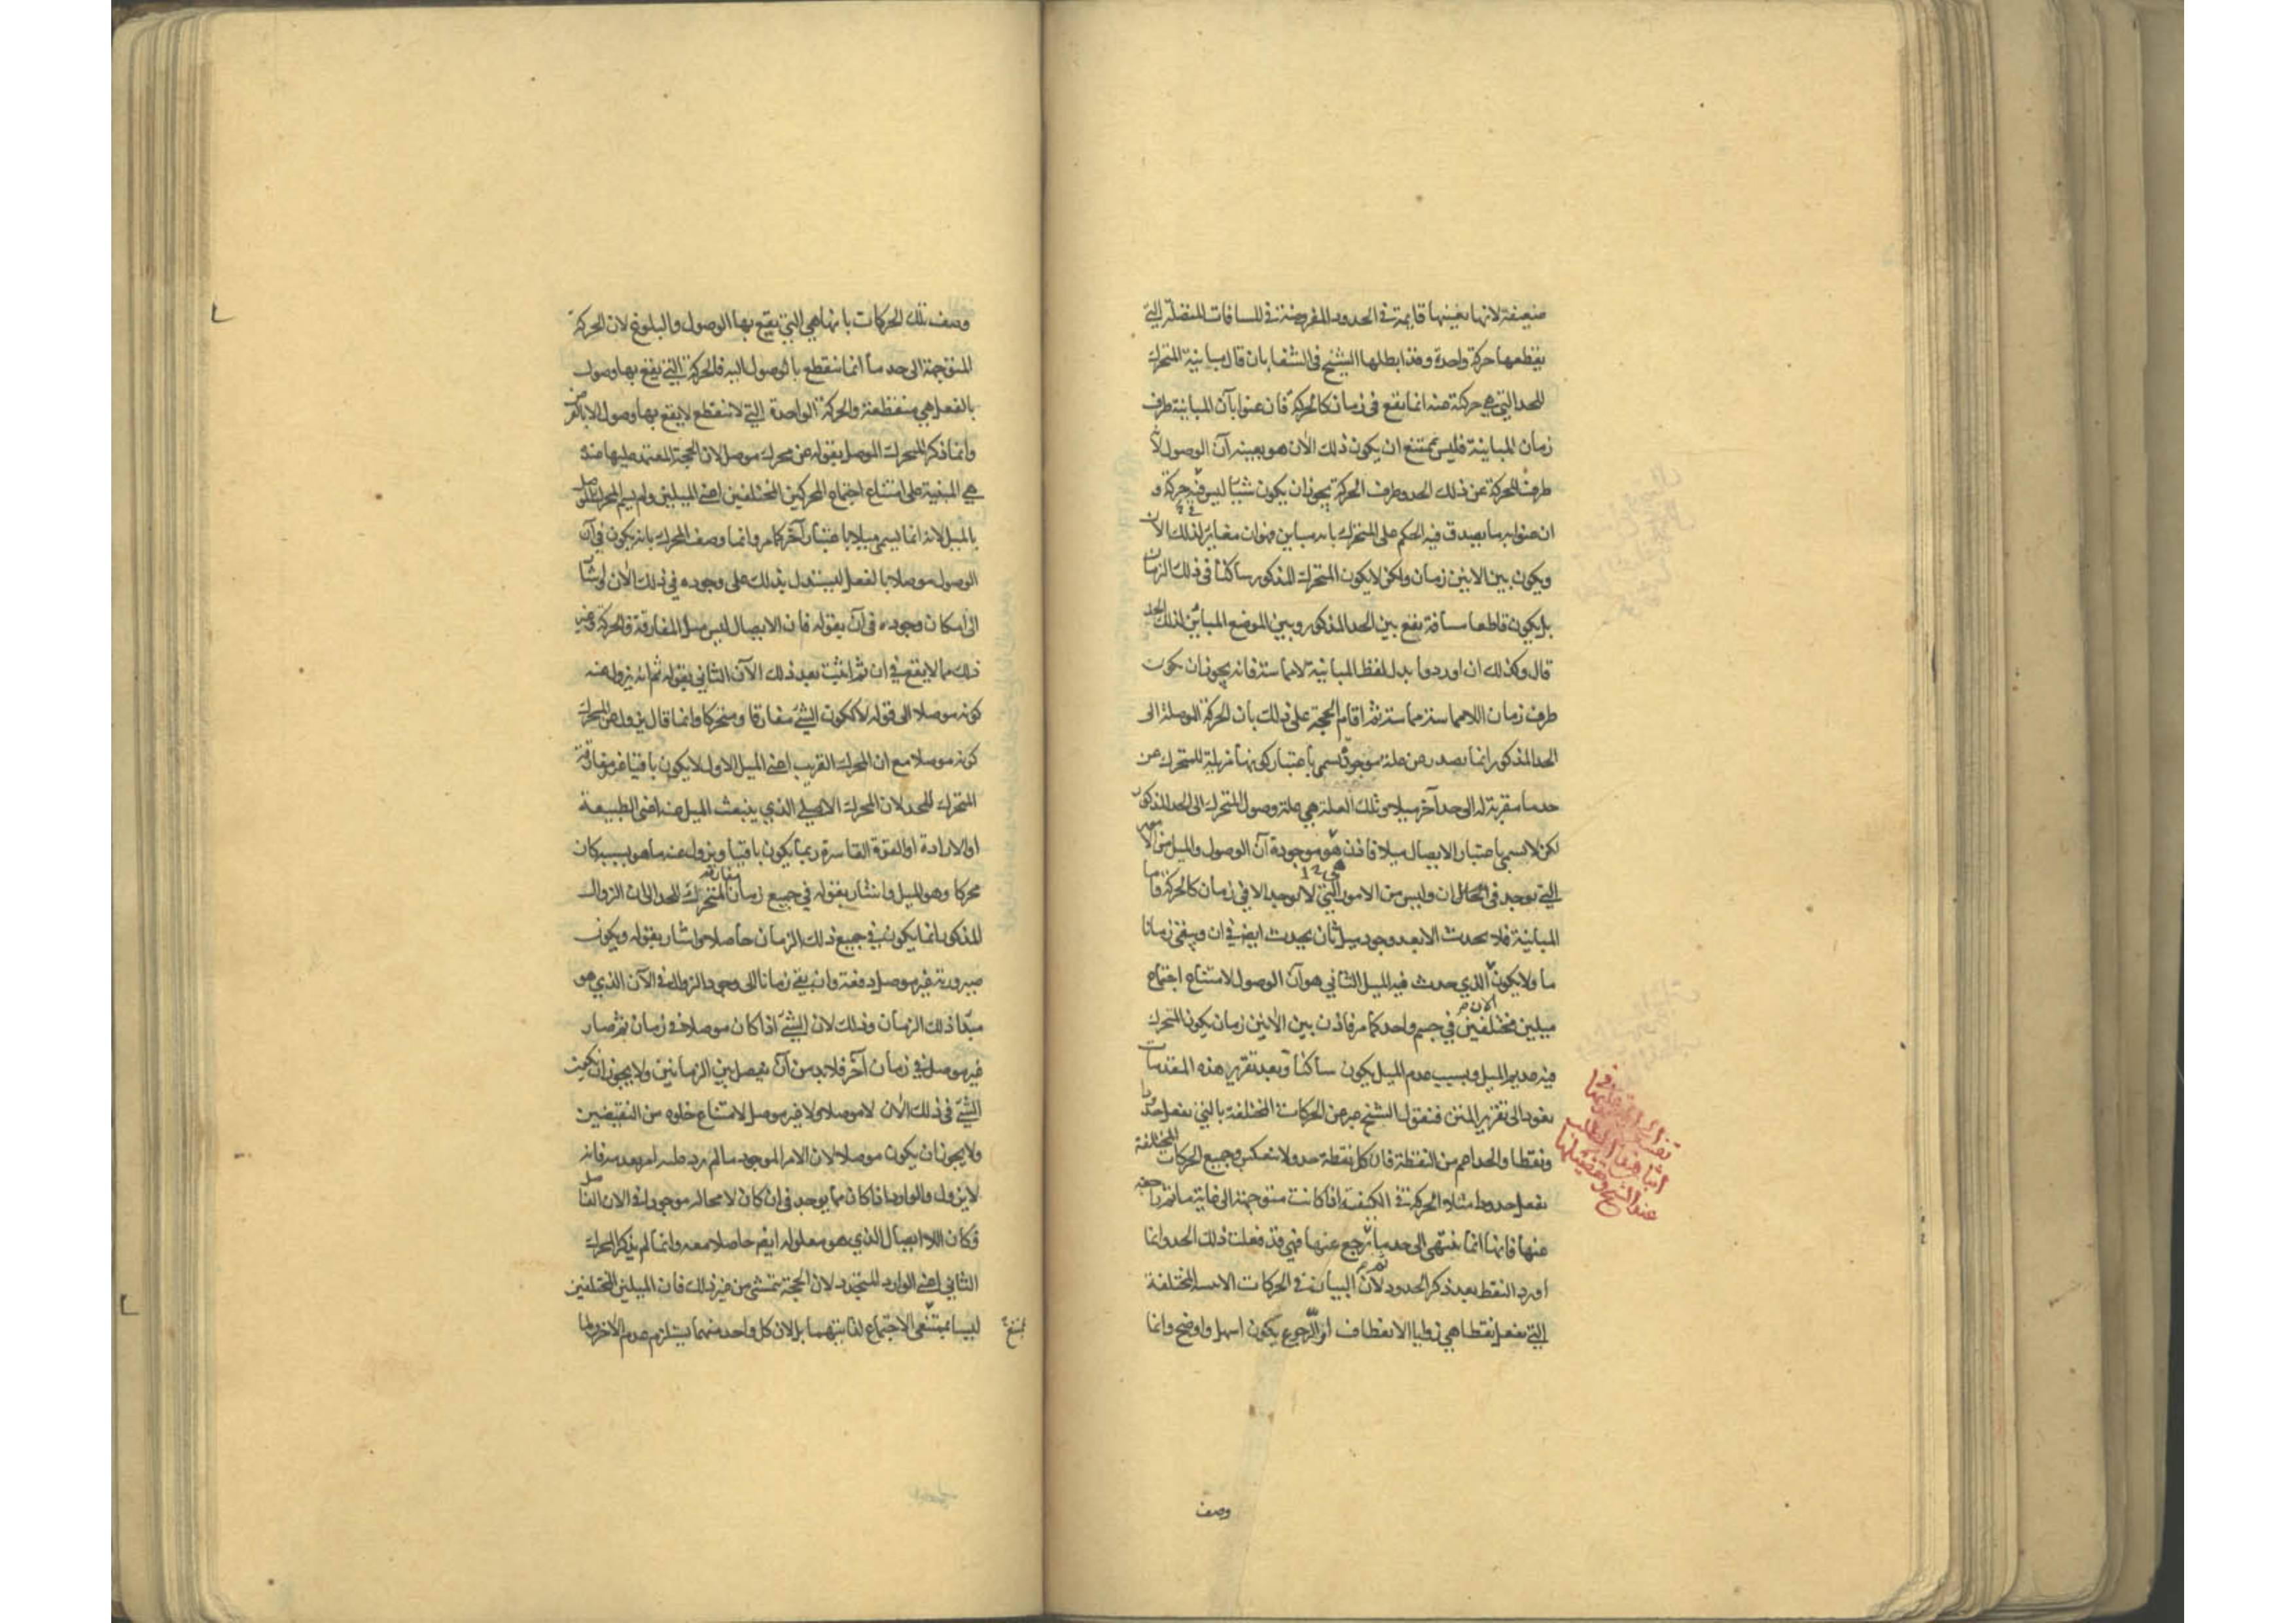 ضعيفة لانها بعينها قايمة في الحدود المفروضة في المسافات المتصلة التي
يقطعها حركة واحدة وقد ابطلها الشيخ في الشفا بان قال مباينة المتحرك
للحد التي هي حركته عنه انما يقع في زمان كالحركة فان عنوا بآن المباينة طرف
زمان المباينة فليس بممتنع ان يكون ذلك الآن هو بعينه آن الوصول لان
طرف الحركة عن ذلك الحد وطرف الحركة يجوز ان يكون شيئا ليس فيه حركة و
ان عنوا به ما يصدق فيه الحكم على المتحرك بانه مباين فهو ان مغاير لذلك الآن
ويكون بين الآنين زمان ولكن لا يكون المتحرك المذكور ساكنا في ذلك الزمان
بل يكون قاطعا مسافة يقع بين الحد المذكور وبين الموضع المباين لذلك الحد
قال وكذلك ان اوردوا بدل لفظ المباينة لامماسة فانه يجوز ان يكون
طرف زمان اللامماسة مماسة ثم اقام الحجة على ذلك بان الحركة الموصلة الى
الحد المذكور انما يصدر عن علة موجودة تسمى باعتبار كونها مزيلة للمتحرك عن
حد ما مقربة له الى حد آخر ميلا وتلك العلة هي علة وصول المتحرك الى الحد المذكور
لكن لا تسمى باعتبار الايصال ميلا فاذن هو موجودة آن الوصول والميل من الامور
التي توجد في الآن وليس من الامور التي لا توجد الا في زمان كالحركة واما
المباينة فلا تحدث الا بعد وجود ميل ثان يحدث ايضا في ان ويبقى زمانا
ما ولا يكون الذي حدث فيه الميل الثاني هو آن الوصول لامتناع اجتماع
الآن
ميلين مختلفين في جسم واحد كما مر فاذن بين الآنين زمان يكون المتحرك
فيه عديم الميل وبسبب عدم الميل يكون ساكنا وبعد تقرير هذه المقدمات
نعود الى تقرير المتن فنقول الشيخ عبر عن الحركات المختلفة بالتي تفعل حدودا
ونقطا والحد اعم من النقطة فان كل نقطة حد ولا ينعكس وجميع الحركات المختلفة
تفعل حدودا مثلا الحركة في الكيفية اذا كانت متوجهة الى غاية ما ثم راجعة
عنها فانها انما تنتهى الى حد ما ثم ترجع عنها فهي قد فعلت ذلك الحد وانما
اورد النقط بعد ذكر الحدود لان البيان في الحركات الاينية المختلفة
التي تفعل نقطا هي زوايا الانعطاف او الرجوع يكون اسهل واوضح وانما
وصف
وصف تلك الحركات بانها هي التي يقع بها الوصول والبلوغ لان الحركة
المتوجهة الى حد ما انما تنقطع بالوصول اليه فالحركة التي يقع بها وصول
بالفعل هي منقطعة والحركة الواحدة التي لا تنقطع لا يقع بها وصول الا بالفرض
وانما ذكر المتحرك الموصل بقوله عن محرك موصل لان الحجة المعتمد عليها عنده
هي المبنية على امتناع اجتماع المحركين المختلفين اعني الميلين ولم يسم المحرك الموصل
بالميل لانه انما يسمى ميلا باعتبار آخر كما مر وانما وصف المحرك بانه يكون في آن
الوصول موصلا بالفعل ليستدل بذلك على وجوده في ذلك الآن واشار
الى امكان وجوده في آن بقوله فان الايصال ليس مثل المفارقة والحركة وغير
ذلك مما لا يقع في ان ثم اثبت بعد ذلك الآن الثاني بقوله ثم انه يزول عنه
كونه موصلا الى قوله لا ككون الشئ مفارقا ومتحركا وانما قال يزول عن المحرك
كونه موصلا مع ان المحرك القريب اعني الميل الاول لا يكون باقيا عند مفارقة
المتحرك للحد لان المحرك الاصلي الذي ينبعث الميل عنه اعني الطبيعة
او الارادة او القوة القاسرة ربما يكون باقيا ويزول عنه ما هو بسببه كان
محركا وهو الميل واشار بقوله في جميع زمان مفارقة المتحرك للحد الى ان الزوال
المذكور انما يكون في جميع ذلك الزمان حاصلا واشار بقوله ويكون
صيرورته غير موصل دفعة وان بقي زمانا الى وجود الزوال في الآن الذي هو
مبدأ ذلك الزمان وذلك لان الشئ اذا كان موصلا في زمان ثم صار
غير موصل في زمان آخر فلا بد من آن يفصل بين الزمانين ولا يجوز ان يكون
الشئ في ذلك الآن لا موصلا ولا غير موصل لامتناع خلوه عن النقيضين
ولا يجوز ان يكون موصلا لان الامر الموجود ما لم يرد عليه امر يعدمه فانه
لا يزول والوارد اذا كان مما يوجد في ان كان لا محالة موجودا في الآن الفاصل
فكان اللا ايصال الذي هو معلوله ايضا حاصلا معه وانما لم يذكر المحرك
الثاني اعني الوارد المتجدد لان الحجة تتمشى من غير ذلك فان الميلين المختلفين
ليسا بممتنعي الاجتماع لذاتيهما بل لان كل واحد منهما يستلزم عدم الآخر ولما